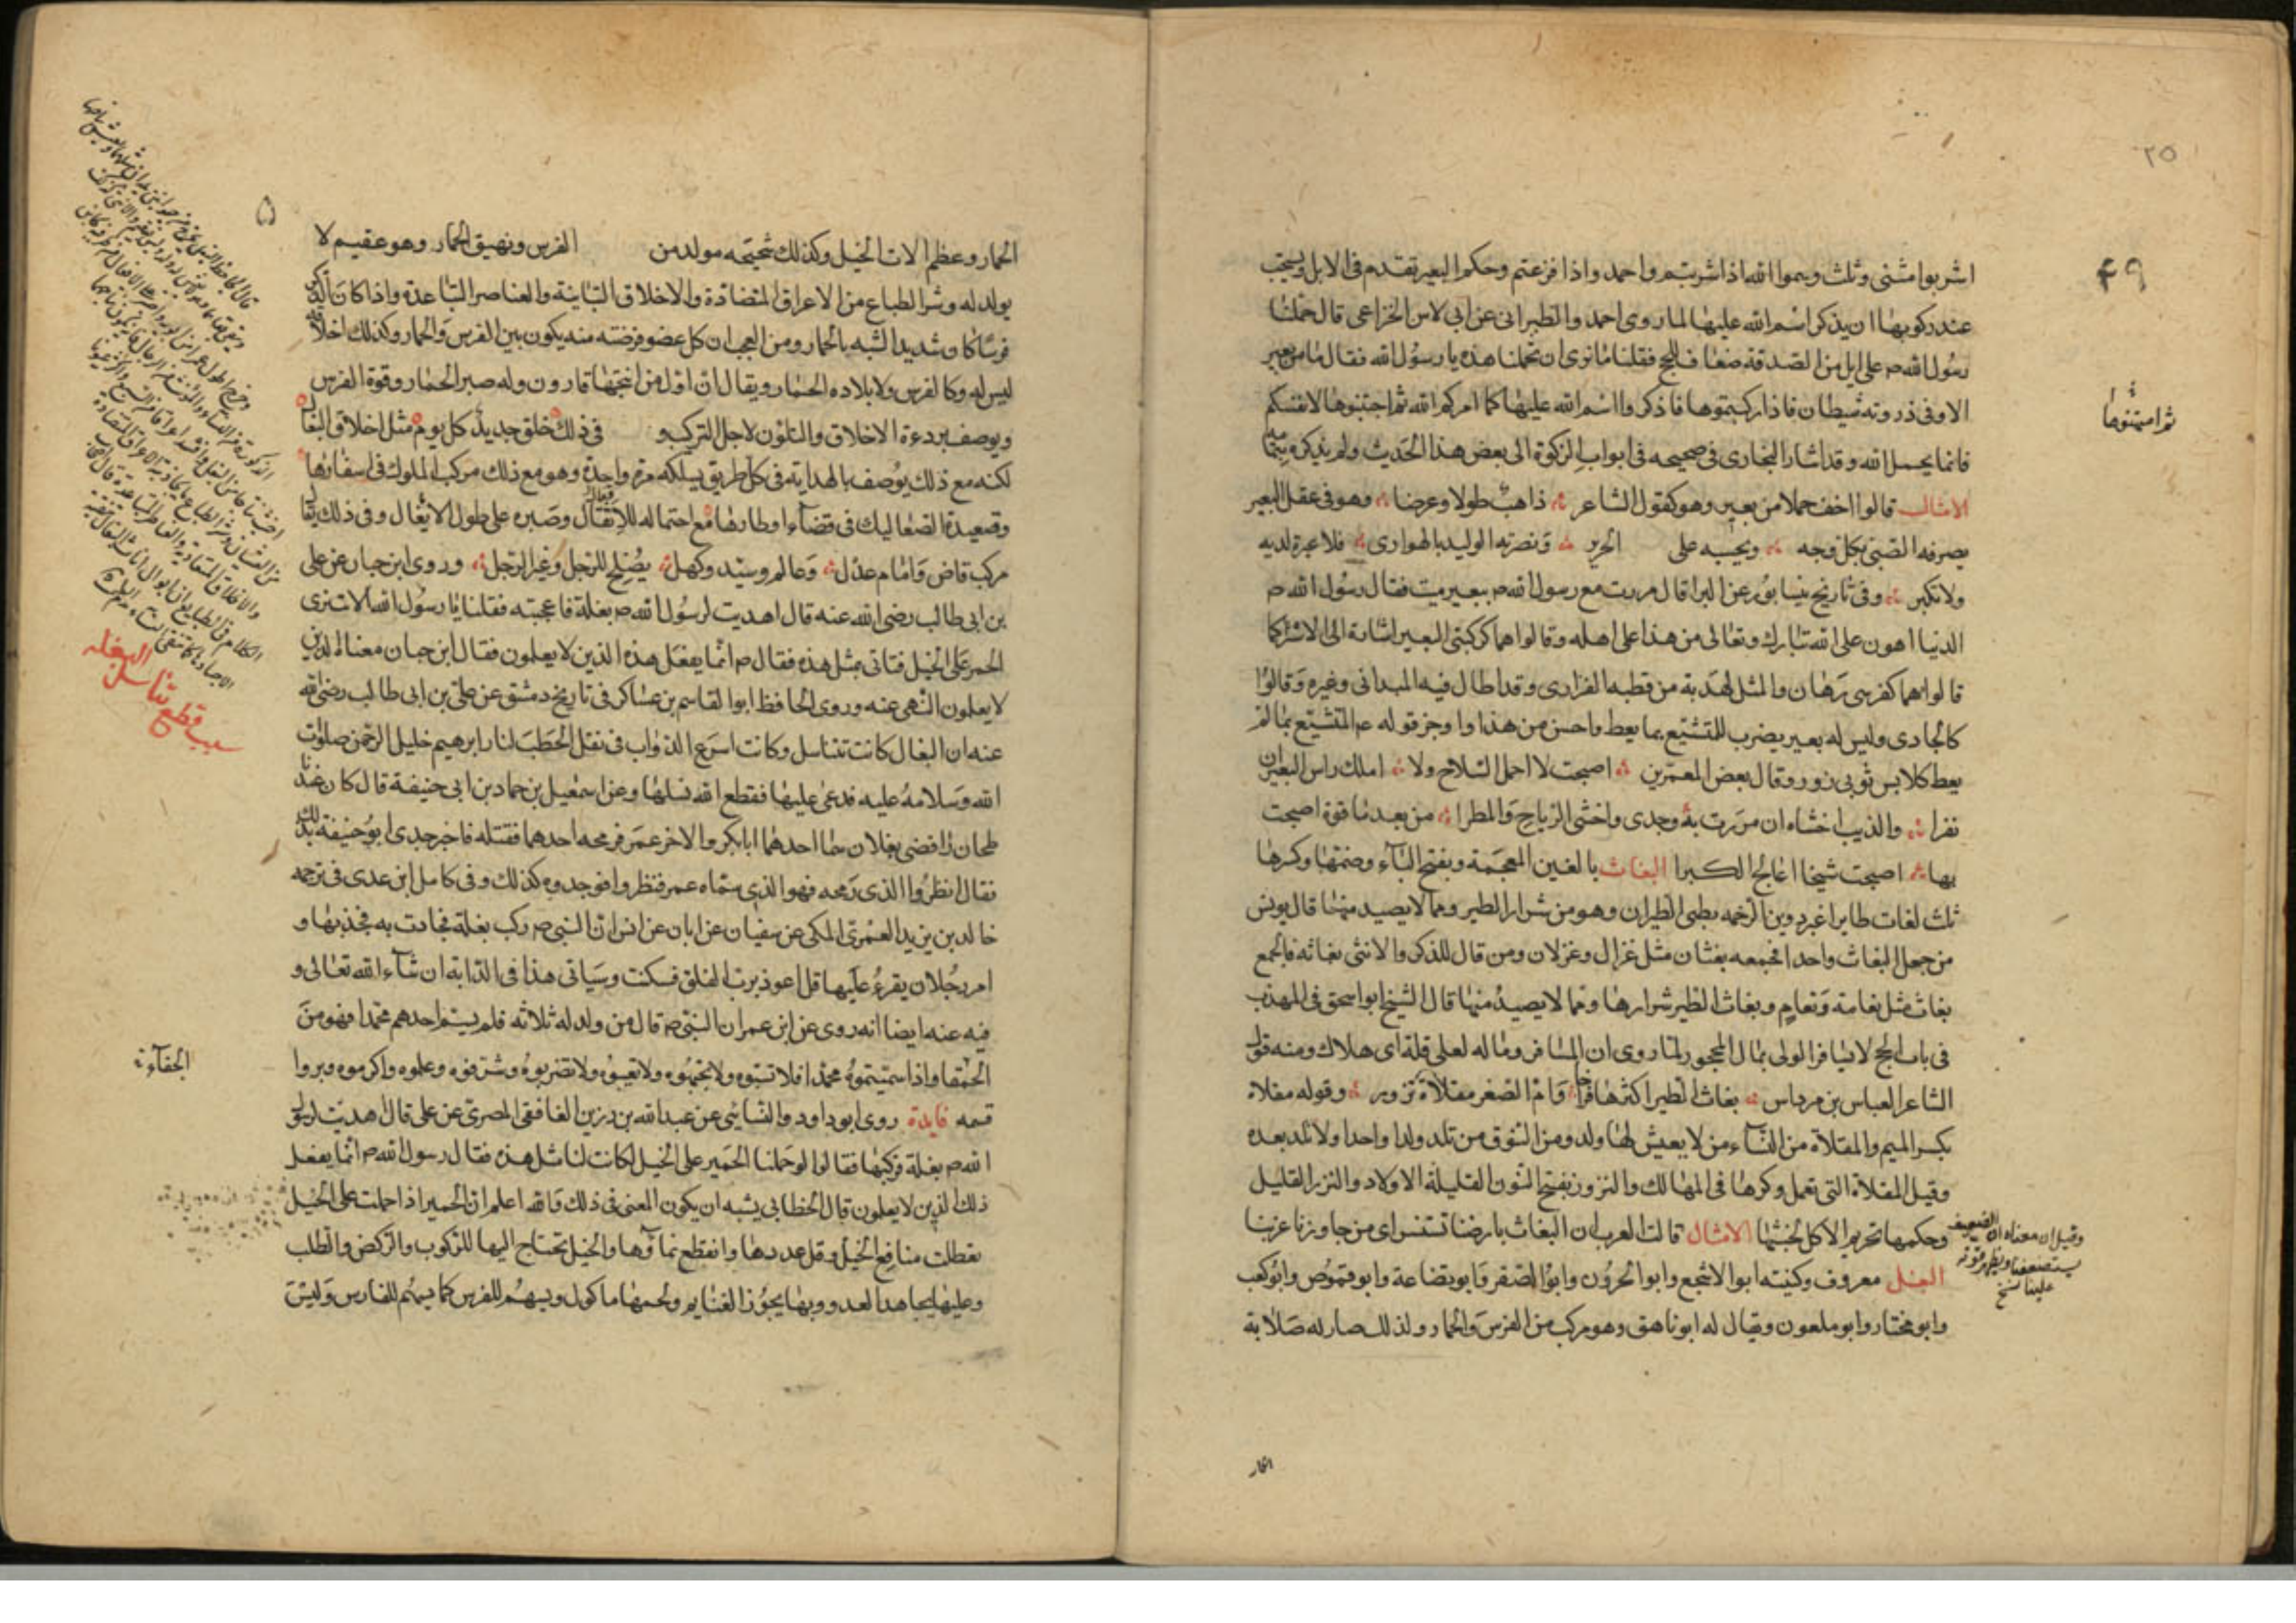 ٢٥
٤٩
اشربوا مثنى وثلث وسموا الله اذا شربتم واحمدوا اذا فرغتم وحكم البعير تقدم فى الابل ويستحب
عند ركوبها ان يذكر اسم الله عليها لما روى احمد والطبرانى عن ابى لاس الخزاعى قال حملنا
رسول الله صم على ابل من الصدقة ضعاف للحج فقلنا ما نرى ان تحملنا هذه يا رسول الله فقال ما من بعير
الا وفى ذروته شيطان فاذا ركبتموها فاذكروا اسم الله عليها كما امركم الله ثم اجتنبوها لانفسكم
ثم امتهنوها
فانما يحمل الله وقد اشار البخارى فى صحيحه فى ابواب الزكوة الى بعض هذا الحديث ولم يذكره بتمامه
الامثال قالوا اخف حملا من بعير وهو كقول الشاعر ذاهب طولا وعرضا وهو فى عقل البعير
يصرفه الصبى بكل وجه ويحبسه على الجرير وتضربه الوليد بالهوارى فلا غيرة لديه
ولا نكير وفى تاريخ نيسابور عن البرا قال مررت مع رسول الله صم ببعير ميت فقال رسول الله صم
الدنيا اهون على الله تبارك وتعالى من هذا على اهله وقالوا هما كركبتى البعير اشارة الى الاشتراك كما
قالوا هما كفرسى رهان والمثل لهدبة من قطبه الفزارى وقد اطال فيه الميدانى وغيره وقالوا
كالحادى وليس له بعير يضرب للمتشبع بما يعط واحسن من هذا واوجز قوله عم المتشبع بما لم
يعط كلابس ثوبى زور وقال بعض المعمرين اصبحت لا احمل السلاح ولا املك راس البعير ان
نفرا والذيب اخشاه ان مررت به وحدى واخشى الرياح والمطرا من بعد ما قوة اصبحت
بها اصبحت شيخا اعالج الكبرا البغاث بالغين المعجمة وبفتح الباء وضمها وكسرها
ثلث لغات طاير اغبر دوين الرخمه بطى الطيران وهو من شرار الطير ومما لا يصيد منها قال يونس
من جعل البغاث واحدا فجمعه بغثان مثل غزال وغزلان ومن قال للذكر والانثى بغاثه فالجمع
بغاث مثل نعامة ونعام وبغاث الطير شرارها ومما لا يصيد منها قال الشيخ ابو اسحق فى المهذب
فى باب الحج لا يسافر الولى بمال المحجور لما روى ان المسافر وماله لعلى قلة اى هلاك ومنه قول
الشاعر العباس بن مرداس بغاث الطير اكثرها فراخا وام الصقر مقلاة نزور وقوله مقلاة
بكسر الميم والمقلاة من النساء من لا يعيش لها ولد ومن النوق من تلد ولدا واحدا ولا تلد بعده
وقيل المقلاة التى تعمل وكرها فى المهالك والنزور بفتح النون القليلة الاولاد والنزر القليل
وحكمها تحريم الاكل لخبثها الامثال قالت العرب ان البغاث بارضنا تستنسر اى من جاورنا عز بنا
وقيل ان معناه ان الضعيف
يستضعفنا ويظهر قوته
علينا نسخ
البغل معروف وكنيته ابو الاشجع وابو الحرون وابو الصقر وابو قضاعة وابو قموص وابو كعب
وابو مختار وابو ملعون ويقال له ابو ناهق وهو مركب من الفرس والحمار ولذلك صار له صلابة
الحمار
الحمار وعظم الات الخيل وكذلك شحيجه مولد من الفرس ونهيق الحمار وهو عقيم لا
يولد له وشر الطباع من الاعراق المتضادة والاخلاق المتباينة والعناصر المتباعدة واذا كان الذكر
فرسا كان شديد الشبه بالحمار ومن العجب ان كل عضو فرضته منه يكون بين الفرس والحمار وكذلك اخلاقه
ليس له وكا الفرس ولا بلاده الحمار ويقال ان اول من انتجها قارون وله صبر الحمار وقوة الفرس
ويوصف بردءة الاخلاق والتلون لاجل التركيب و فى ذلك خلق جديد كل يوم مثل اخلاق البغال
لكنه مع ذلك يوصف بالهداية فى كل طريق يسلكه مرة واحدة وهو مع ذلك مركب الملوك فى اسفارها
وقعيدة الصعاليك فى قضاء اوطارها مع احتماله للاثقال وصبره على طول الايغال وفى ذلك يقال
مركب قاض وامام عدل وعالم وسيد وكهل يصلح للرجل وغير الرجل وروى ابن حبان عن على
بن ابى طالب رضى الله عنه قال اهديت لرسول الله صم بغلة فاعجبته فقلنا يا رسول الله الا ننزى
الحمر على الخيل فتاتى بمثل هذه فقال صم انما يفعل هذه الذين لا يعلمون فقال ابن حبان معناه الذين
لا يعلمون النهى عنه وروى الحافظ ابو القاسم بن عساكر فى تاريخ دمشق عن على بن ابى طالب رضى الله
عنه ان البغال كانت تتناسل وكانت اسرع الدواب فى نقل الحطب لنار ابرهيم خليل الرحمن صلوات
الله وسلامه عليه فدعى عليها فقطع الله نسلها وعن اسمعيل بن حماد بن ابى حنيفة قال كان عندنا
طحان رافضى بغلان سما احدهما ابا بكر والاخر عمر فرمحه احدهما فقتله فاخبر جدى ابو حنيفة بذلك
فقال انظروا الذى رمحه فهو الذى سماه عمر فنظروا فوجدوه كذلك وفى كامل ابن عدى فى ترجمه
خالد بن يزيد العمرى المكى عن سفيان عن ابان عن انس ان النبى صم ركب بغلة فحادت به فحبسها و
امر رجلا ان يقرء عليها قل اعوذ برب الفلق فسكنت وسياتى هذا فى الدابة ان شاء الله تعالى و
فيه عنه ايضا انه روى عن ابن عمر ان النبى صم قال من ولد له ثلاثة فلم يسم احدهم محمدا فهو من
الجفاءة
الحمقا واذا سميتموه محمدا فلا تسبوه ولا تجبهوه ولا تعيبوه ولا تضربوه وشرفوه وعظموه واكرموه وبروا
قسمه فايدة روى ابو داود والنسائى عن عبد الله بن زرير الغافقى المصرى عن على قال اهديت لرسول
الله صم بغلة فركبها فقالوا لو حملنا الحمير على الخيل لكانت لنا مثل هذه فقال رسول الله صم انما يفعل
ذلك الذين لا يعلمون قال الخطابى يشبه ان يكون المعنى فى ذلك والله اعلم ان الحمير اذا حملت على الخيل
تعطلت منافع الخيل وقل عددها وانقطع نماؤها والخيل تحتاج اليها للركوب والركض والطلب
وعليها يجاهد العدو وبها يحوز الغنايم ولحمها ماكول ويسهم للفرس كما يسهم للفارس وليس
سبب قطع تناسل البغله